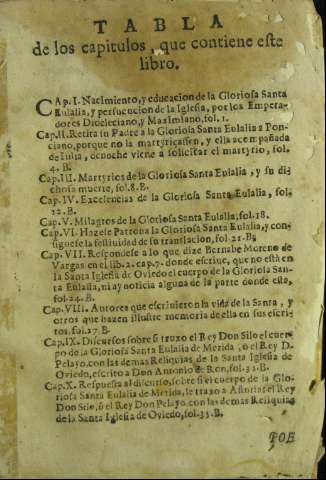 TABLA
de los capitulos, que contiene este
libro.
CAp. I. Nacimiento, y educacion de la Gloriosa Santa
Eulalia, y persucucion de la Iglesia, por los Empera-
dores Diocleciano, y Maximiano, fol. 1.
Cap. II. Retira su Padre a la Gloriosa Santa Eulalia a Pon-
ciano, porque no la martyricassen, y ella acompañada
de Iulia, denoche viene à solicitar el martyrio, fol.
4. B.
Cap. III. Martyrios de la Gloriosa Santa Eulalia, y su di-
chosa muerte, fol. 8. B.
Cap. IV. Excelencias de la Gloriosa Santa Eulalia, fol.
12. B.
Cap. V. Milagros de la Gloriosa Santa Eulalia, fol. 18.
Cap. VI. Hazese Patrona la Gloriosa Santa Eulalia, y con-
siguese la festiuidad de su translacion, fol. 21. B.
Cap. VII. Respondese a lo que dize Bernabe Moreno de
Vargas en el lib. 2. cap. 7. donde escriue, que no está en
la Santa Iglesia de Oviedo el cuerpo de la Gloriosa San-
ta Eulalia, ni ay noticia alguna de la parte donde este,
fol. 24. B.
Cap. VIII. Autores que escriuieron la vida de la Santa, y
otros que hazen illustre memoria de ella en sus escri-
tos. fol. 27. B.
Cap. IX. Discursos sobre si truxo el Rey Don Silo el cuer-
po de la Gloriosa Santa Eulalia de Merida, ò el Rey D.
Pelayo, con las demas Reliquias de la Santa Iglesia de
Oviedo, escrito a Don Antonio de Ron, fol. 32. B.
Cap. X. Respuesta al discurso, sobre si el cuerpo de la Glo-
riosa Santa Eulalia de Merida, le traxo a Asturias el Rey
Don Silo, ò el Rey Don Pelayo con las demas Reliquias
de la Santa Iglesia de Oviedo, fol. 35. B.